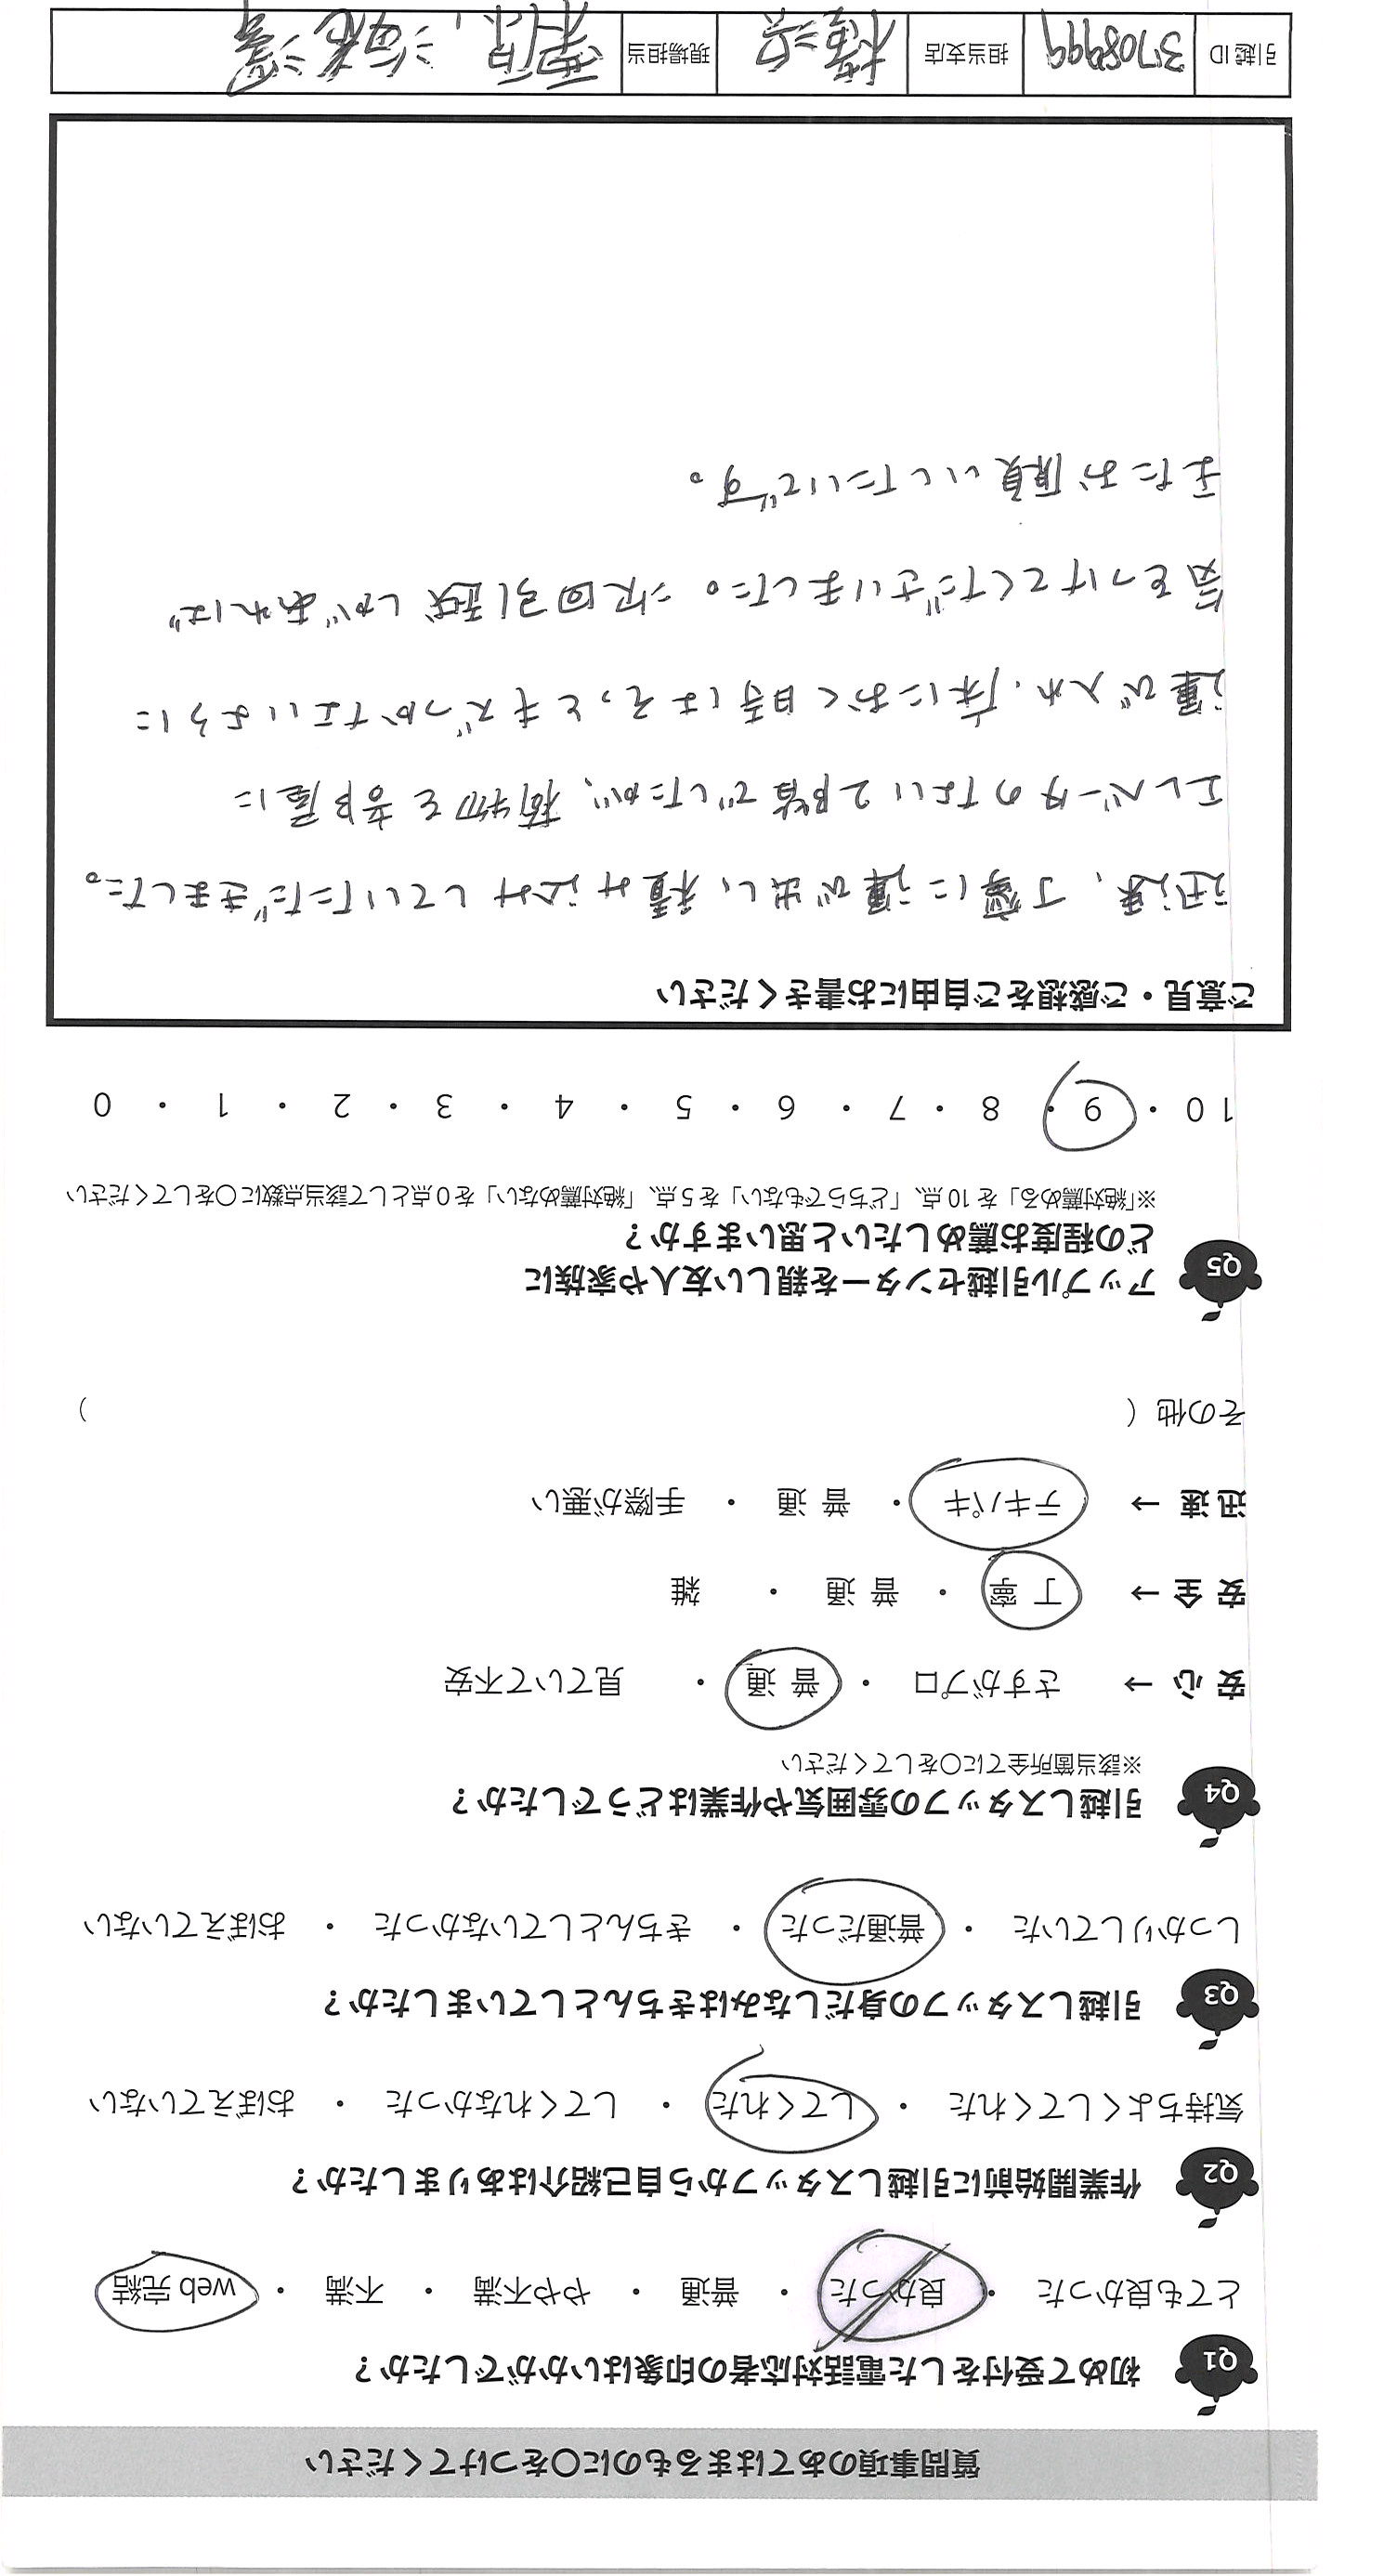 質問事項のあてはまるものに〇をつけてください
Q1 初めて受付をした電話対応者の印象はいかがでしたか？
とても良かった ・ 良かった ・ 普通 ・ やや不満 ・ 不満 ・ web 完結
Q2 作業開始前に引越しスタッフから自己紹介はありましたか？
気持ちよくしてくれた ・ してくれた ・ してくれなかった ・ おぼえていない
Q3 引越しスタッフの身だしなみはきちんとしていましたか？
しっかりしていた ・ 普通だった ・ きちんとしていなかった ・ おぼえていない
Q4 引越しスタッフの雰囲気や作業はどうでしたか？
※該当箇所全てに〇をしてください
安 心 → さすがプロ ・ 普 通 ・ 見ていて不安
安 全 → 丁 寧 ・ 普 通 ・ 雑
迅 速 → テキパキ ・ 普 通 ・ 手際が悪い
その他（ ）
Q5 アップル引越センターを親しい友人や家族に
どの程度お薦めしたいと思いますか？
※「絶対薦める」を 10 点、「どちらでもない」を 5 点、「絶対薦めない」を 0 点として該当点数に〇をしてください
10 ・ 9 ・ 8 ・ 7 ・ 6 ・ 5 ・ 4 ・ 3 ・ 2 ・ 1 ・ 0
ご意見・ご感想をご自由にお書きください
迅速、丁寧に運び出し、積み込みしていただきました。
エレベータのない2階でしたが、荷物を部屋に
運び入れ、床におく時はそっとキズつかないように
気をつけてくださいました。次回引越しがあれば
またお願いしたいです。
引越 ID 3708999 担当支店 横浜 現場担当